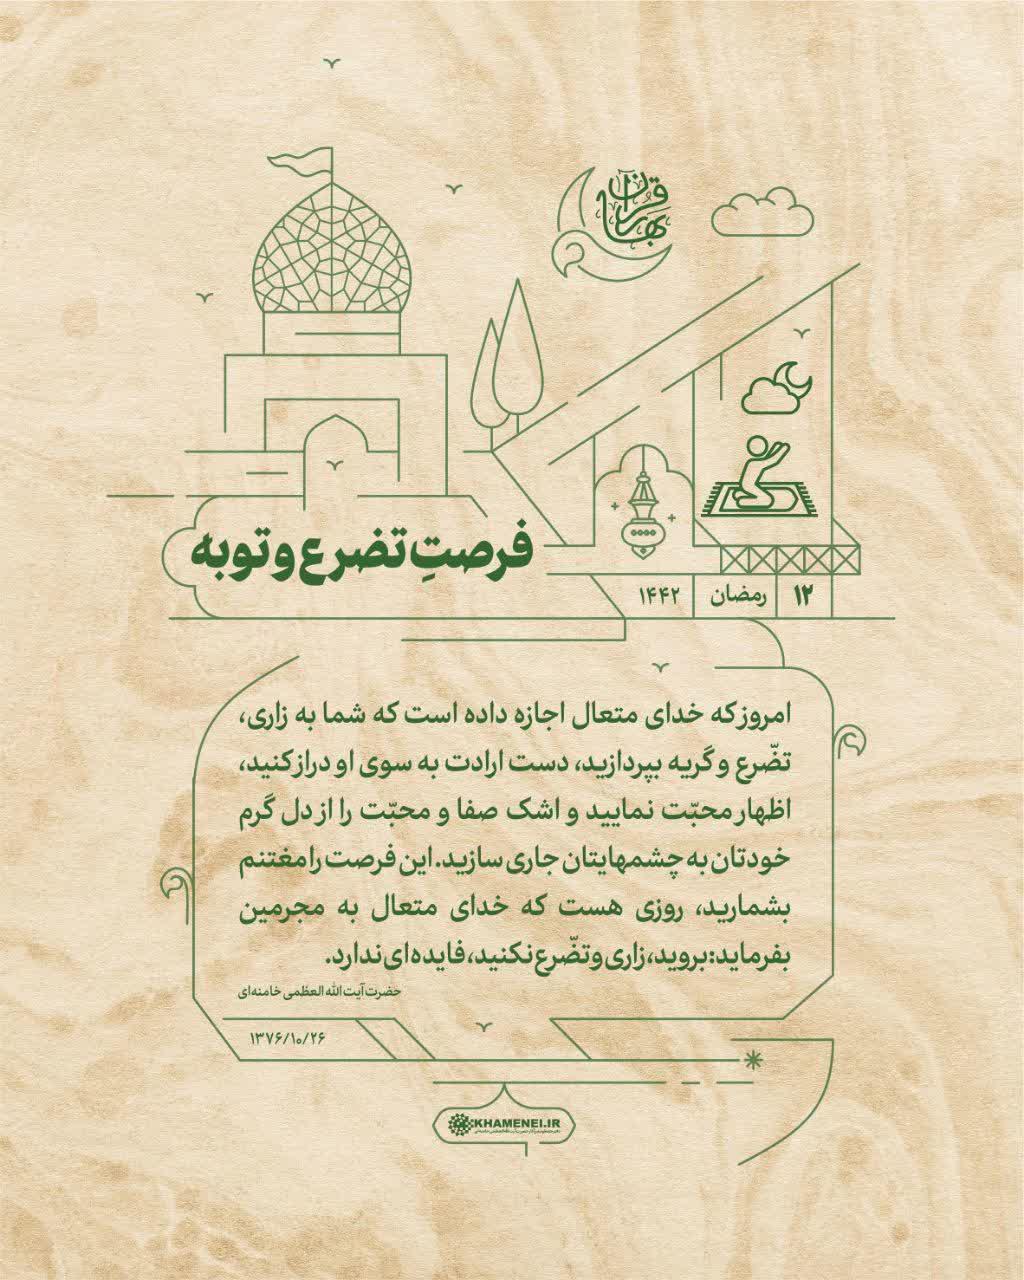 بهار قرآن
فرصتِ تضرع و توبه
۱۲ رمضان ۱۴۴۲
امروز که خدای متعال اجازه داده است که شما به زاری،
تضّرع و گریه بپردازید، دست ارادت به سوی او دراز کنید،
اظهار محبّت نمایید و اشک صفا و محبّت را از دل گرم
خودتان به چشمهایتان جاری سازید. این فرصت را مغتنم
بشمارید، روزی هست که خدای متعال به مجرمین
بفرماید: بروید، زاری و تضّرع نکنید، فایده ای ندارد.
حضرت آیت الله العظمی خامنه‌ای
۱۳۷۶/۱۰/۲۶
KHAMENEI.IR